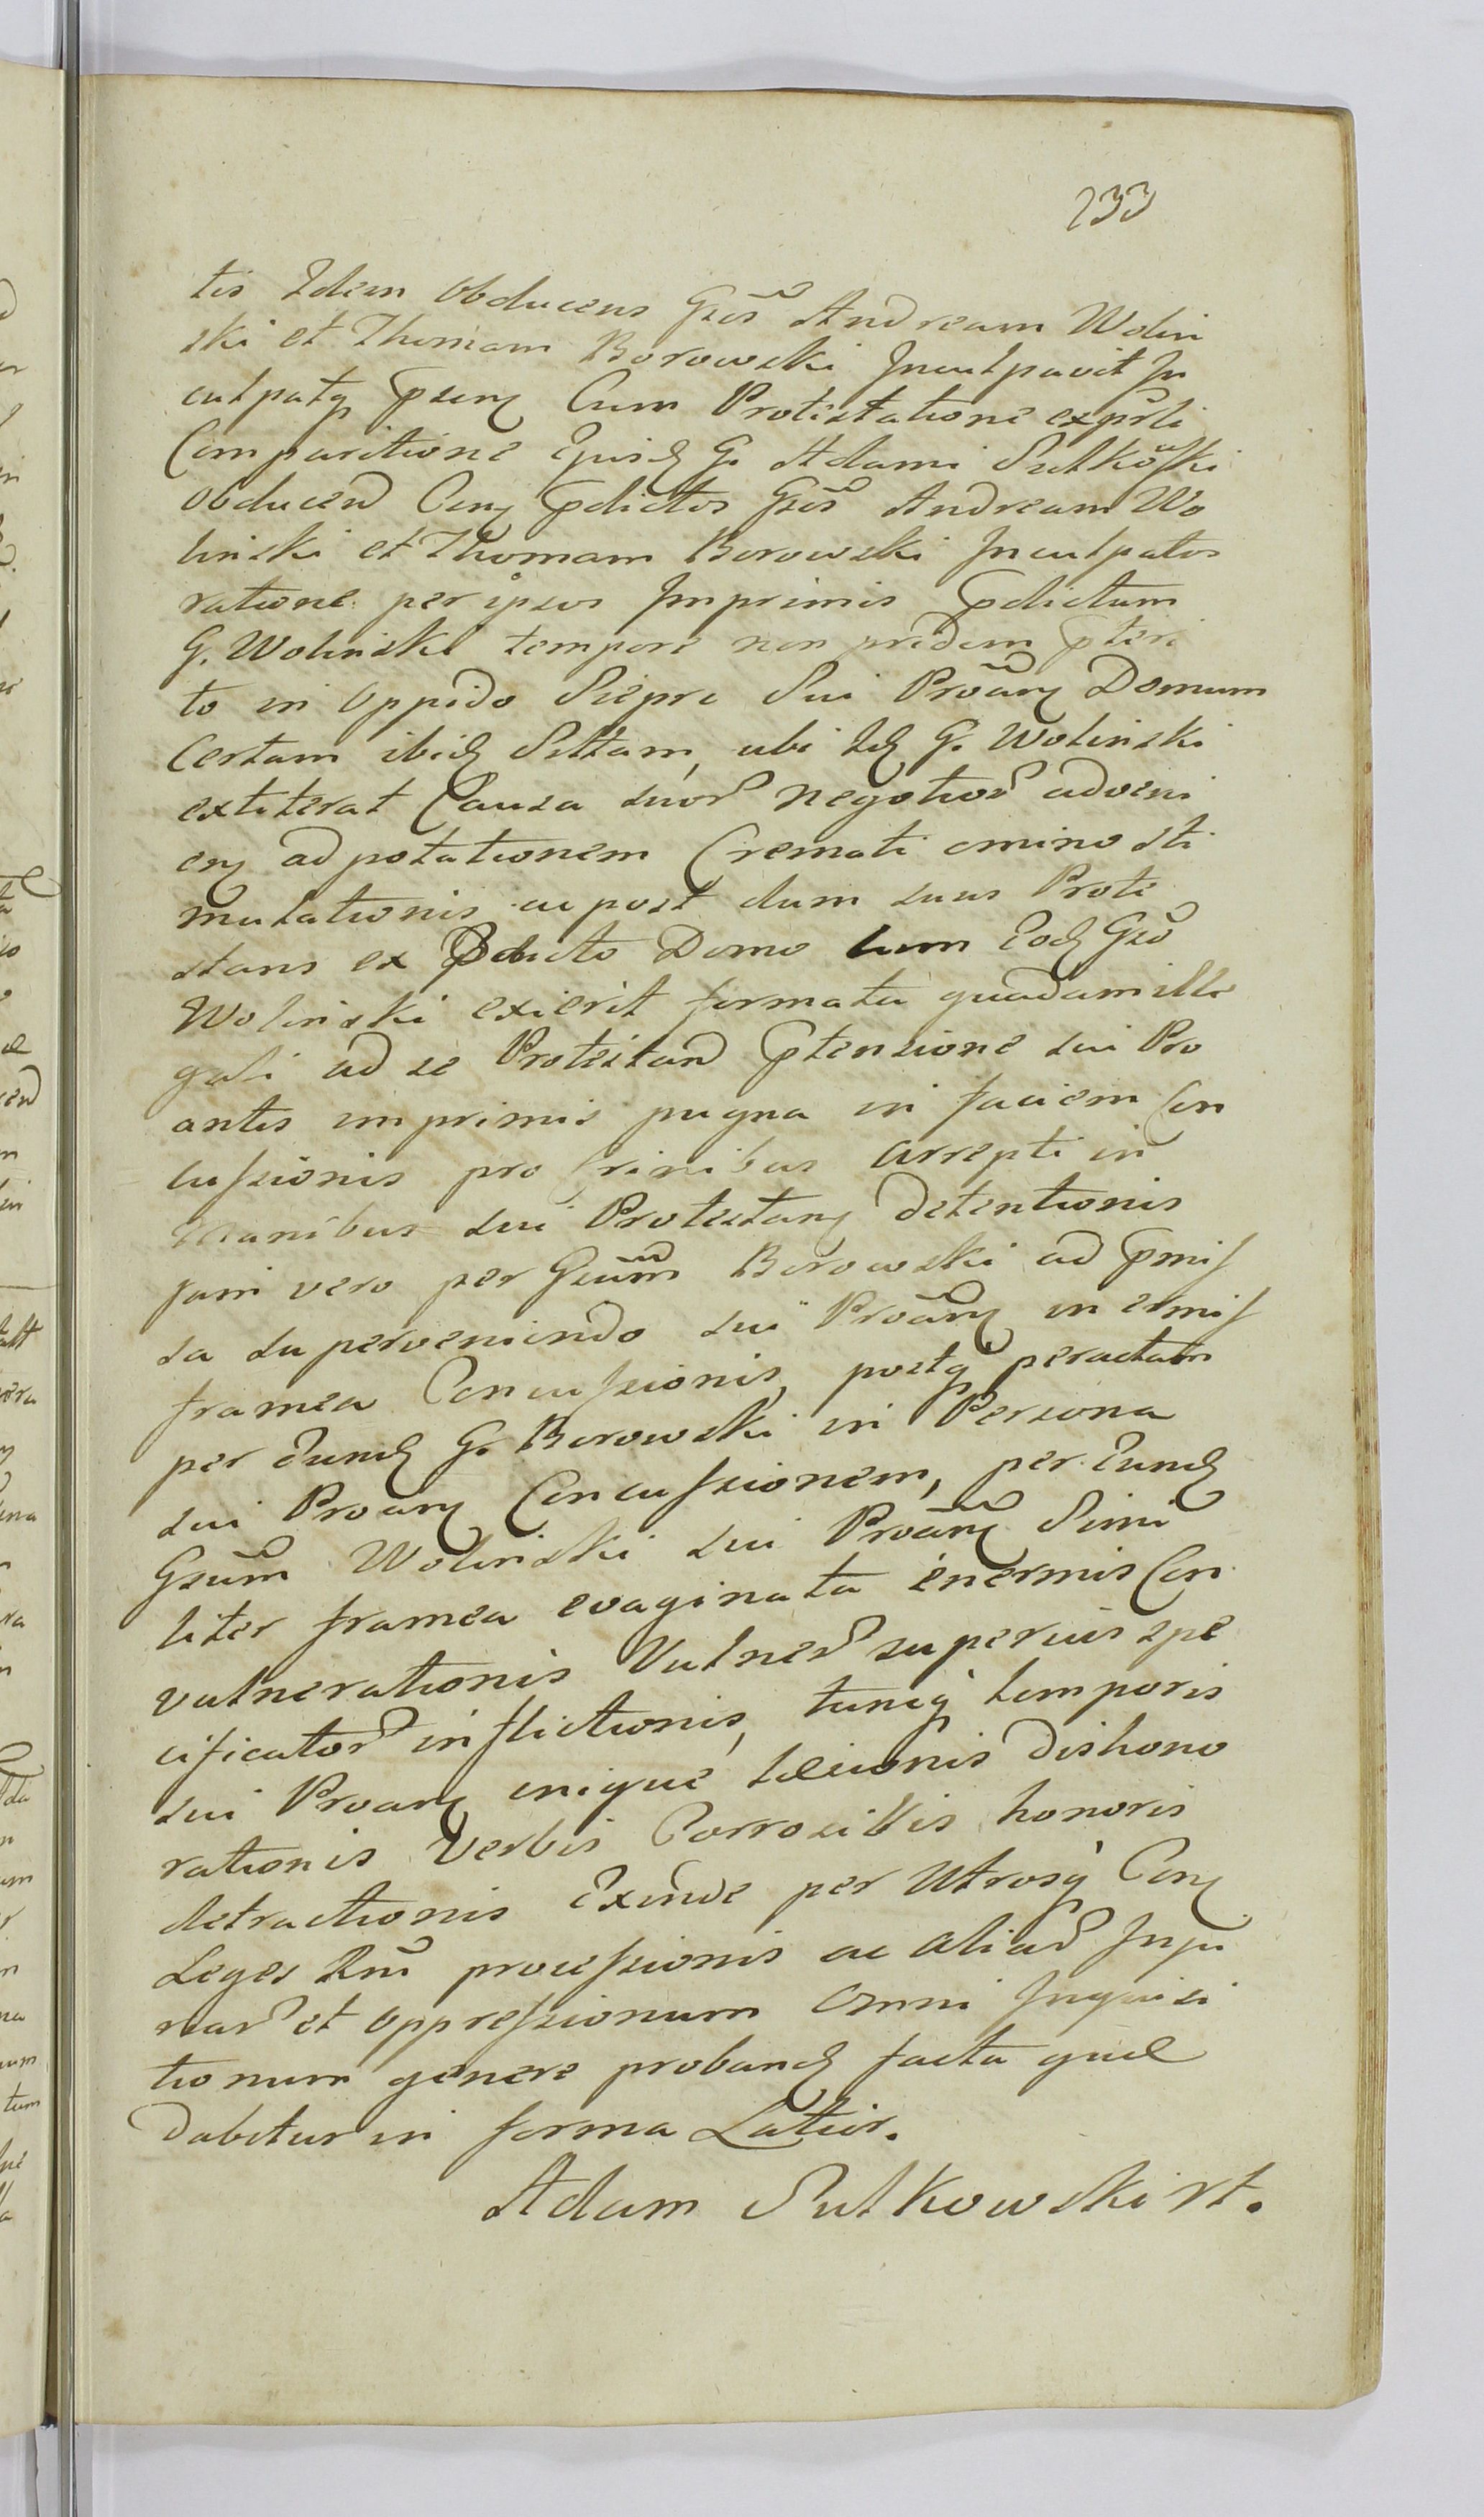 233
tis Idem obducens Gsos Andream Wolin
ski et Thomam Borowski Inculpavit In
culpatq psenq Cum Protestatione exprti
Comparitione Ejusd G. Adami Sutkowski
obducend Conq pdictos Gsos Andream Wo
linski et Thomam Borowski Inculpatos
ratione per ipsos Imprimis pdictum
G. Wolinski tempore non pridem pteri
to in Oppido Siepre Sui Proanq Domum
Certam ibid Sittam, ubi Id G. Wolinski
extiterat Causa suor negotior adveni
enq ad potationem Cremati omino sti
mulationis ac post dum suus Prote
stans ex pdicto Domo cum Eod Gso
Wolinski exierit formata quadam ille
gali ad se Protestand ptensione sui Pro
antis imprimis pugna in faciem Con
cussionis pro Crinibus arrepti in
Manibus sui Protestanq detentionis
jam vero per Gsum Borowski ad pmis
sa superveniendo sui Proanq in ermis
framea Concussionis, postq peractam
per Eund G. Borowski in Persona
sui Proanq Concussionem, per Eund
Gsum Wolinski sui Proanq Simi
liter framea evaginata enermis Con
vulnerationis Vulner superius spe
cificator inflictionis, tuniq temporis
sui Proanq inique læsionis dishono
rationis Verbis Corrosibis honoris
detractionis Exinde per Utrosq Conq
Leges Rni processionis ac aliar Inju
riar et oppressionum Omni Inquisi
tionum genere proband facta quæ
dabitur in forma Latior.
Adam Sutkowski st.